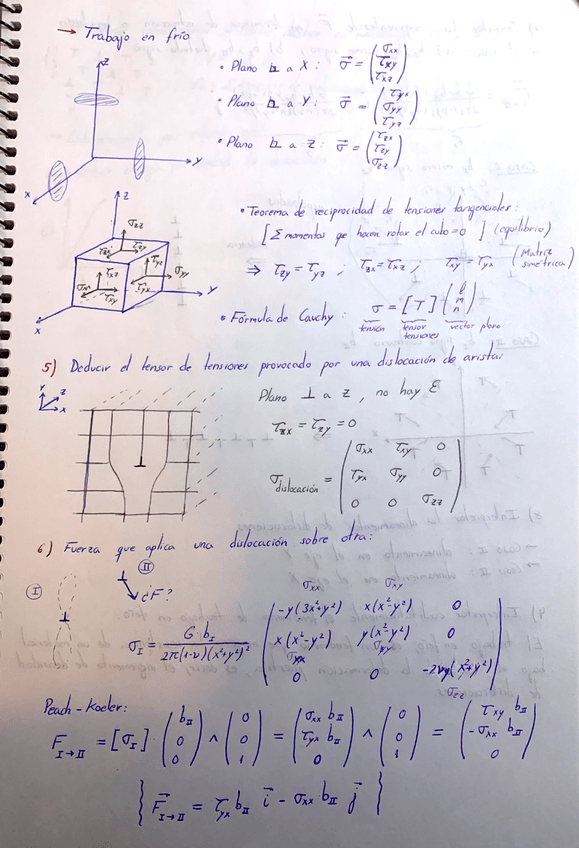 → Trabajo en frío
• Plano ⊥ a X: σ⃗ = (σxx τxy τxz)
• Plano ⊥ a Y: σ⃗ = (τyx σyy τyz)
• Plano ⊥ a Z: σ⃗ = (τzx τzy σzz)
z
y
x
z
σzz
τzx τzy
τxz τyz
σyy
σxx τxy τyx
y
x
• Teorema de reciprocidad de tensiones tangenciales:
[Σ momentos qe hacen rotar el cubo = 0] (equilibrio)
⇒ τzy = τyz ; τzx = τxz ; τxy = τyx (Matriz simétrica)
• Fórmula de Cauchy: σ = [T] (l m n)
tensión tensor tensiones vector plano
5) Deducir el tensor de tensiones provocado por una dislocación de arista:
Y Z X
Plano ⊥ a z, no hay ε
τzx = τzy = 0
σdislocación = (σxx τxy 0
τyx σyy 0
0 0 σzz)
6) Fuerza que aplica una dislocación sobre otra:
I
II
¿F?
σxx σxy
σI = G·bI / 2π(1-ν)(x²+y²)² (-y(3x²+y²) x(x²-y²) 0
x(x²-y²) y(x²-y²) 0
σyx σyy
0 0 -2νy(x²+y²))
σzz
Peach-Koeler:
F I→II = [σI] · (bII 0 0) ∧ (0 0 1) = (σxx bII τyx bII 0) ∧ (0 0 1) = (τxy bII -σxx bII 0)
{ F⃗ I→II = τyx bII i⃗ - σxx bII j⃗ }